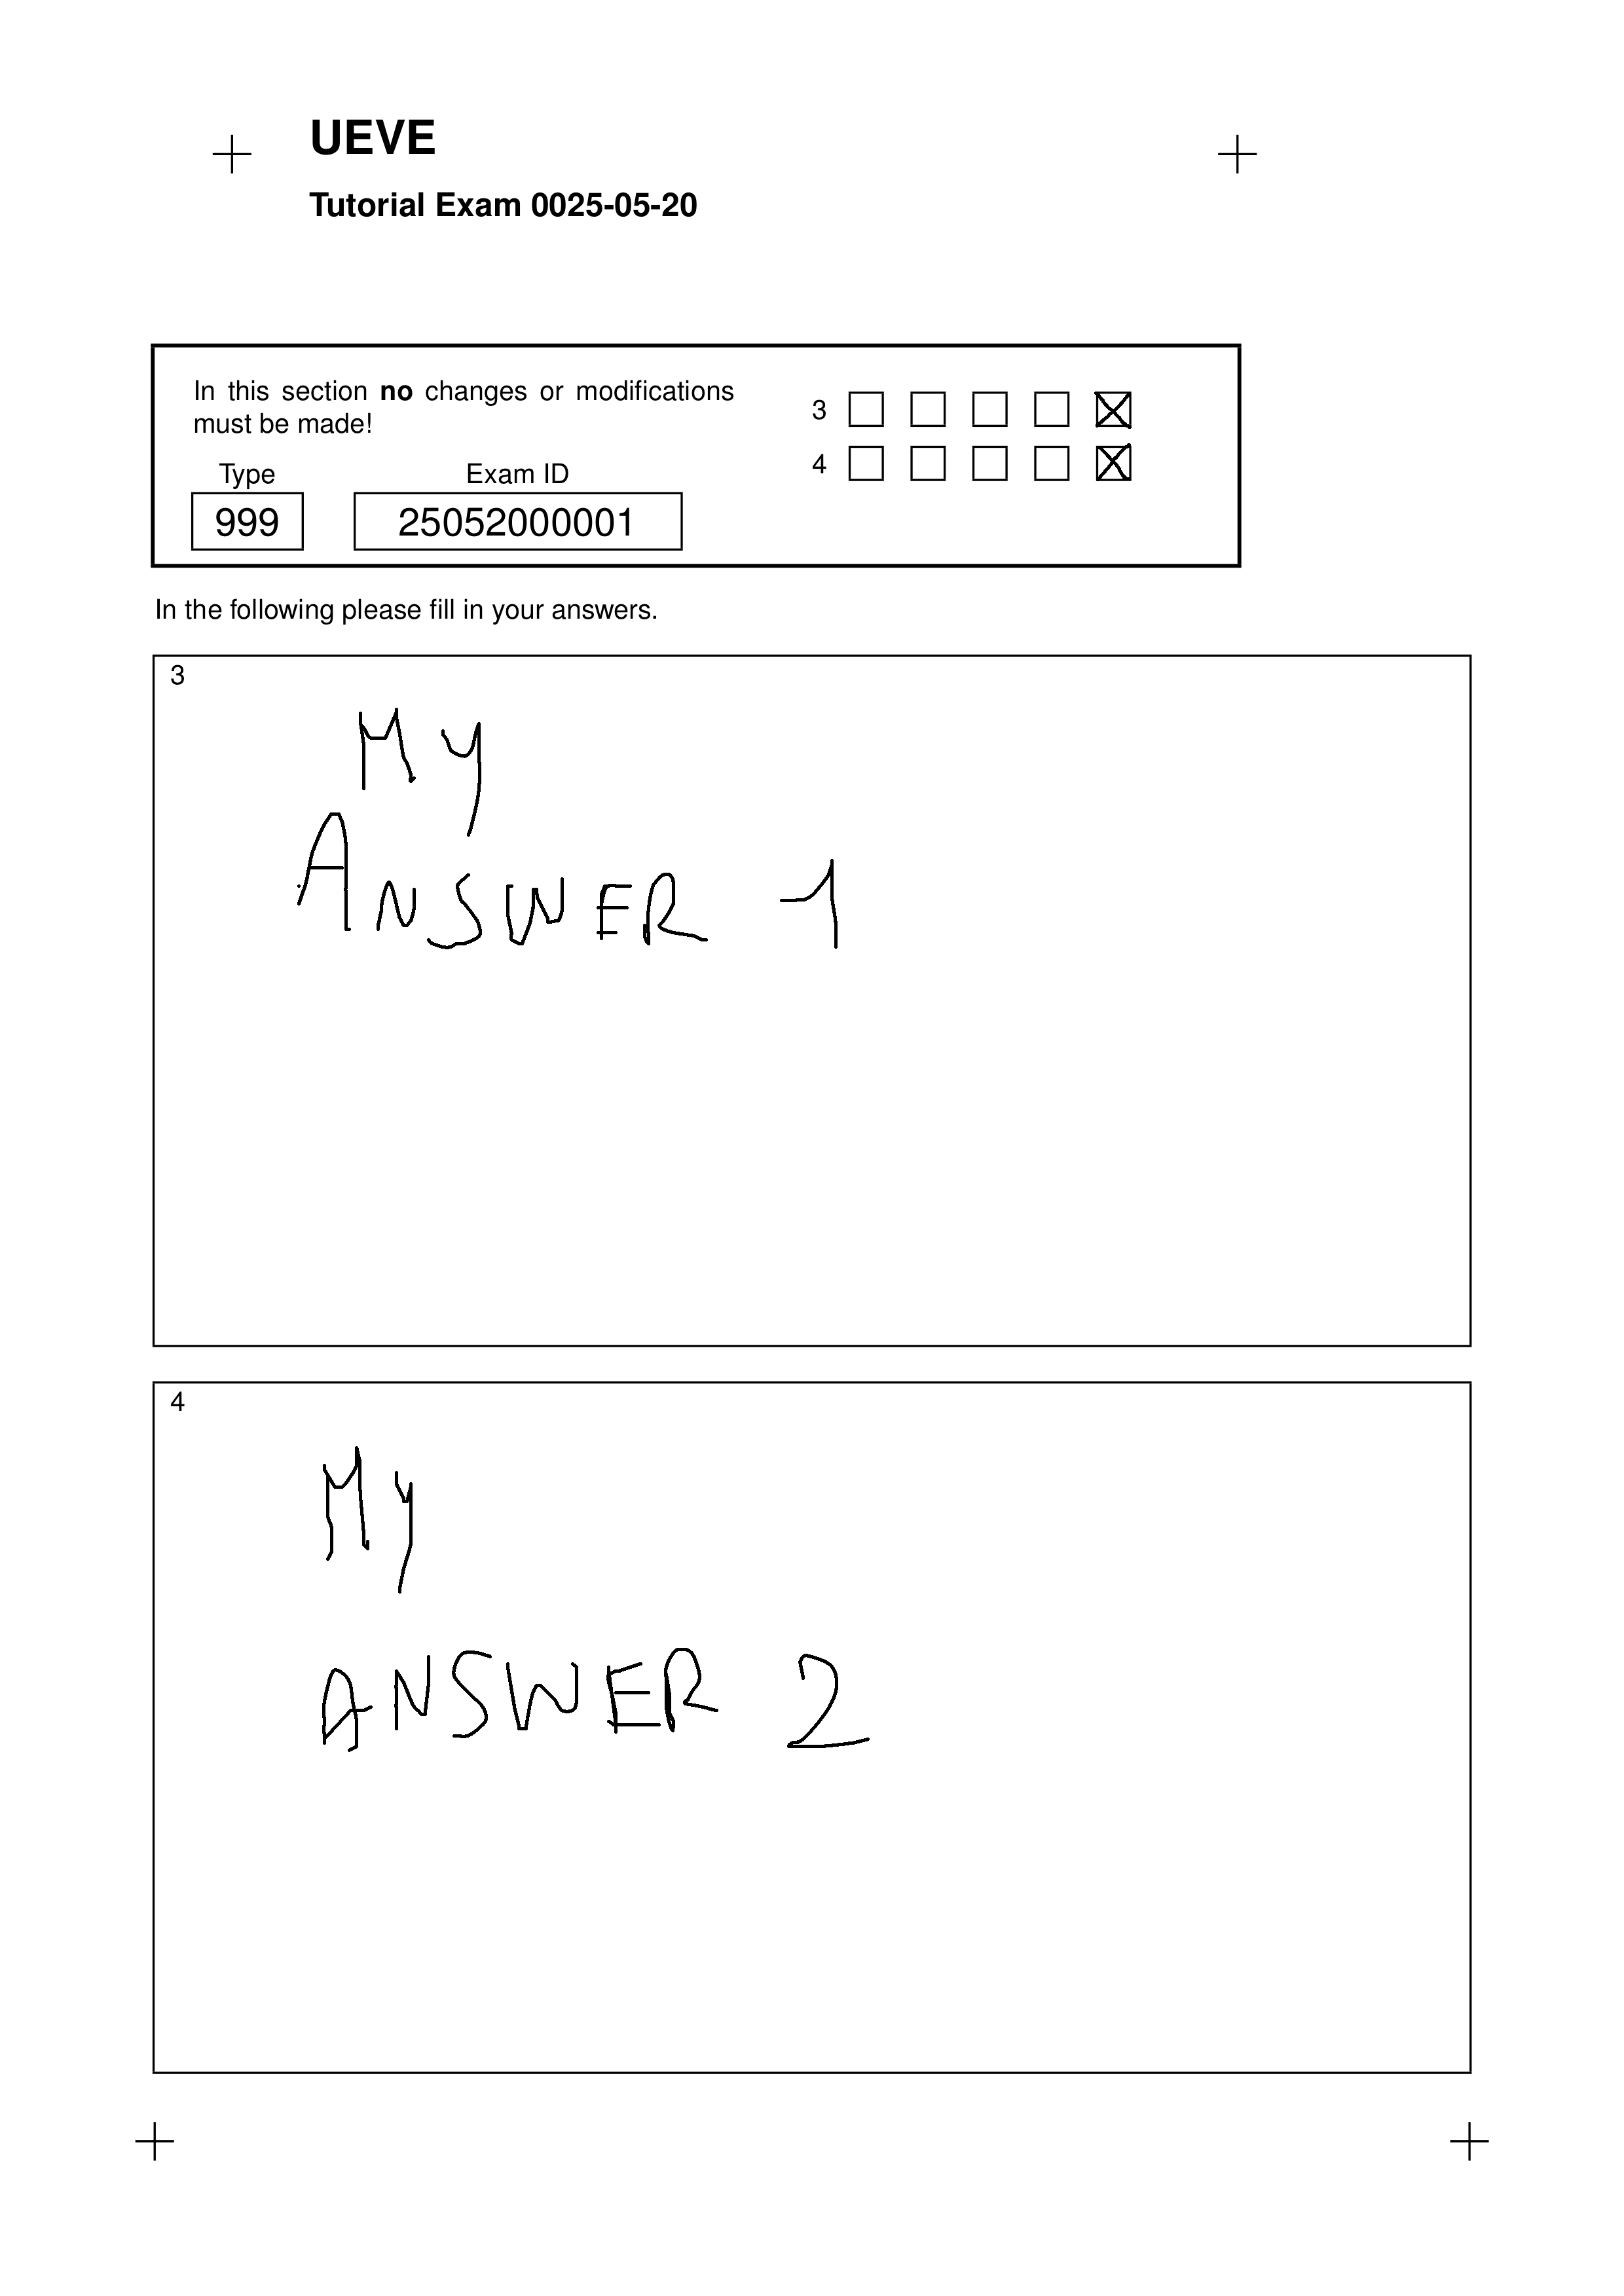 UEVE
Tutorial Exam 0025-05-20
In this section no changes or modifications
must be made!
Type Exam ID
999 25052000001
3
4
In the following please fill in your answers.
3
My
ANSWER 1
4
My
ANSWER 2